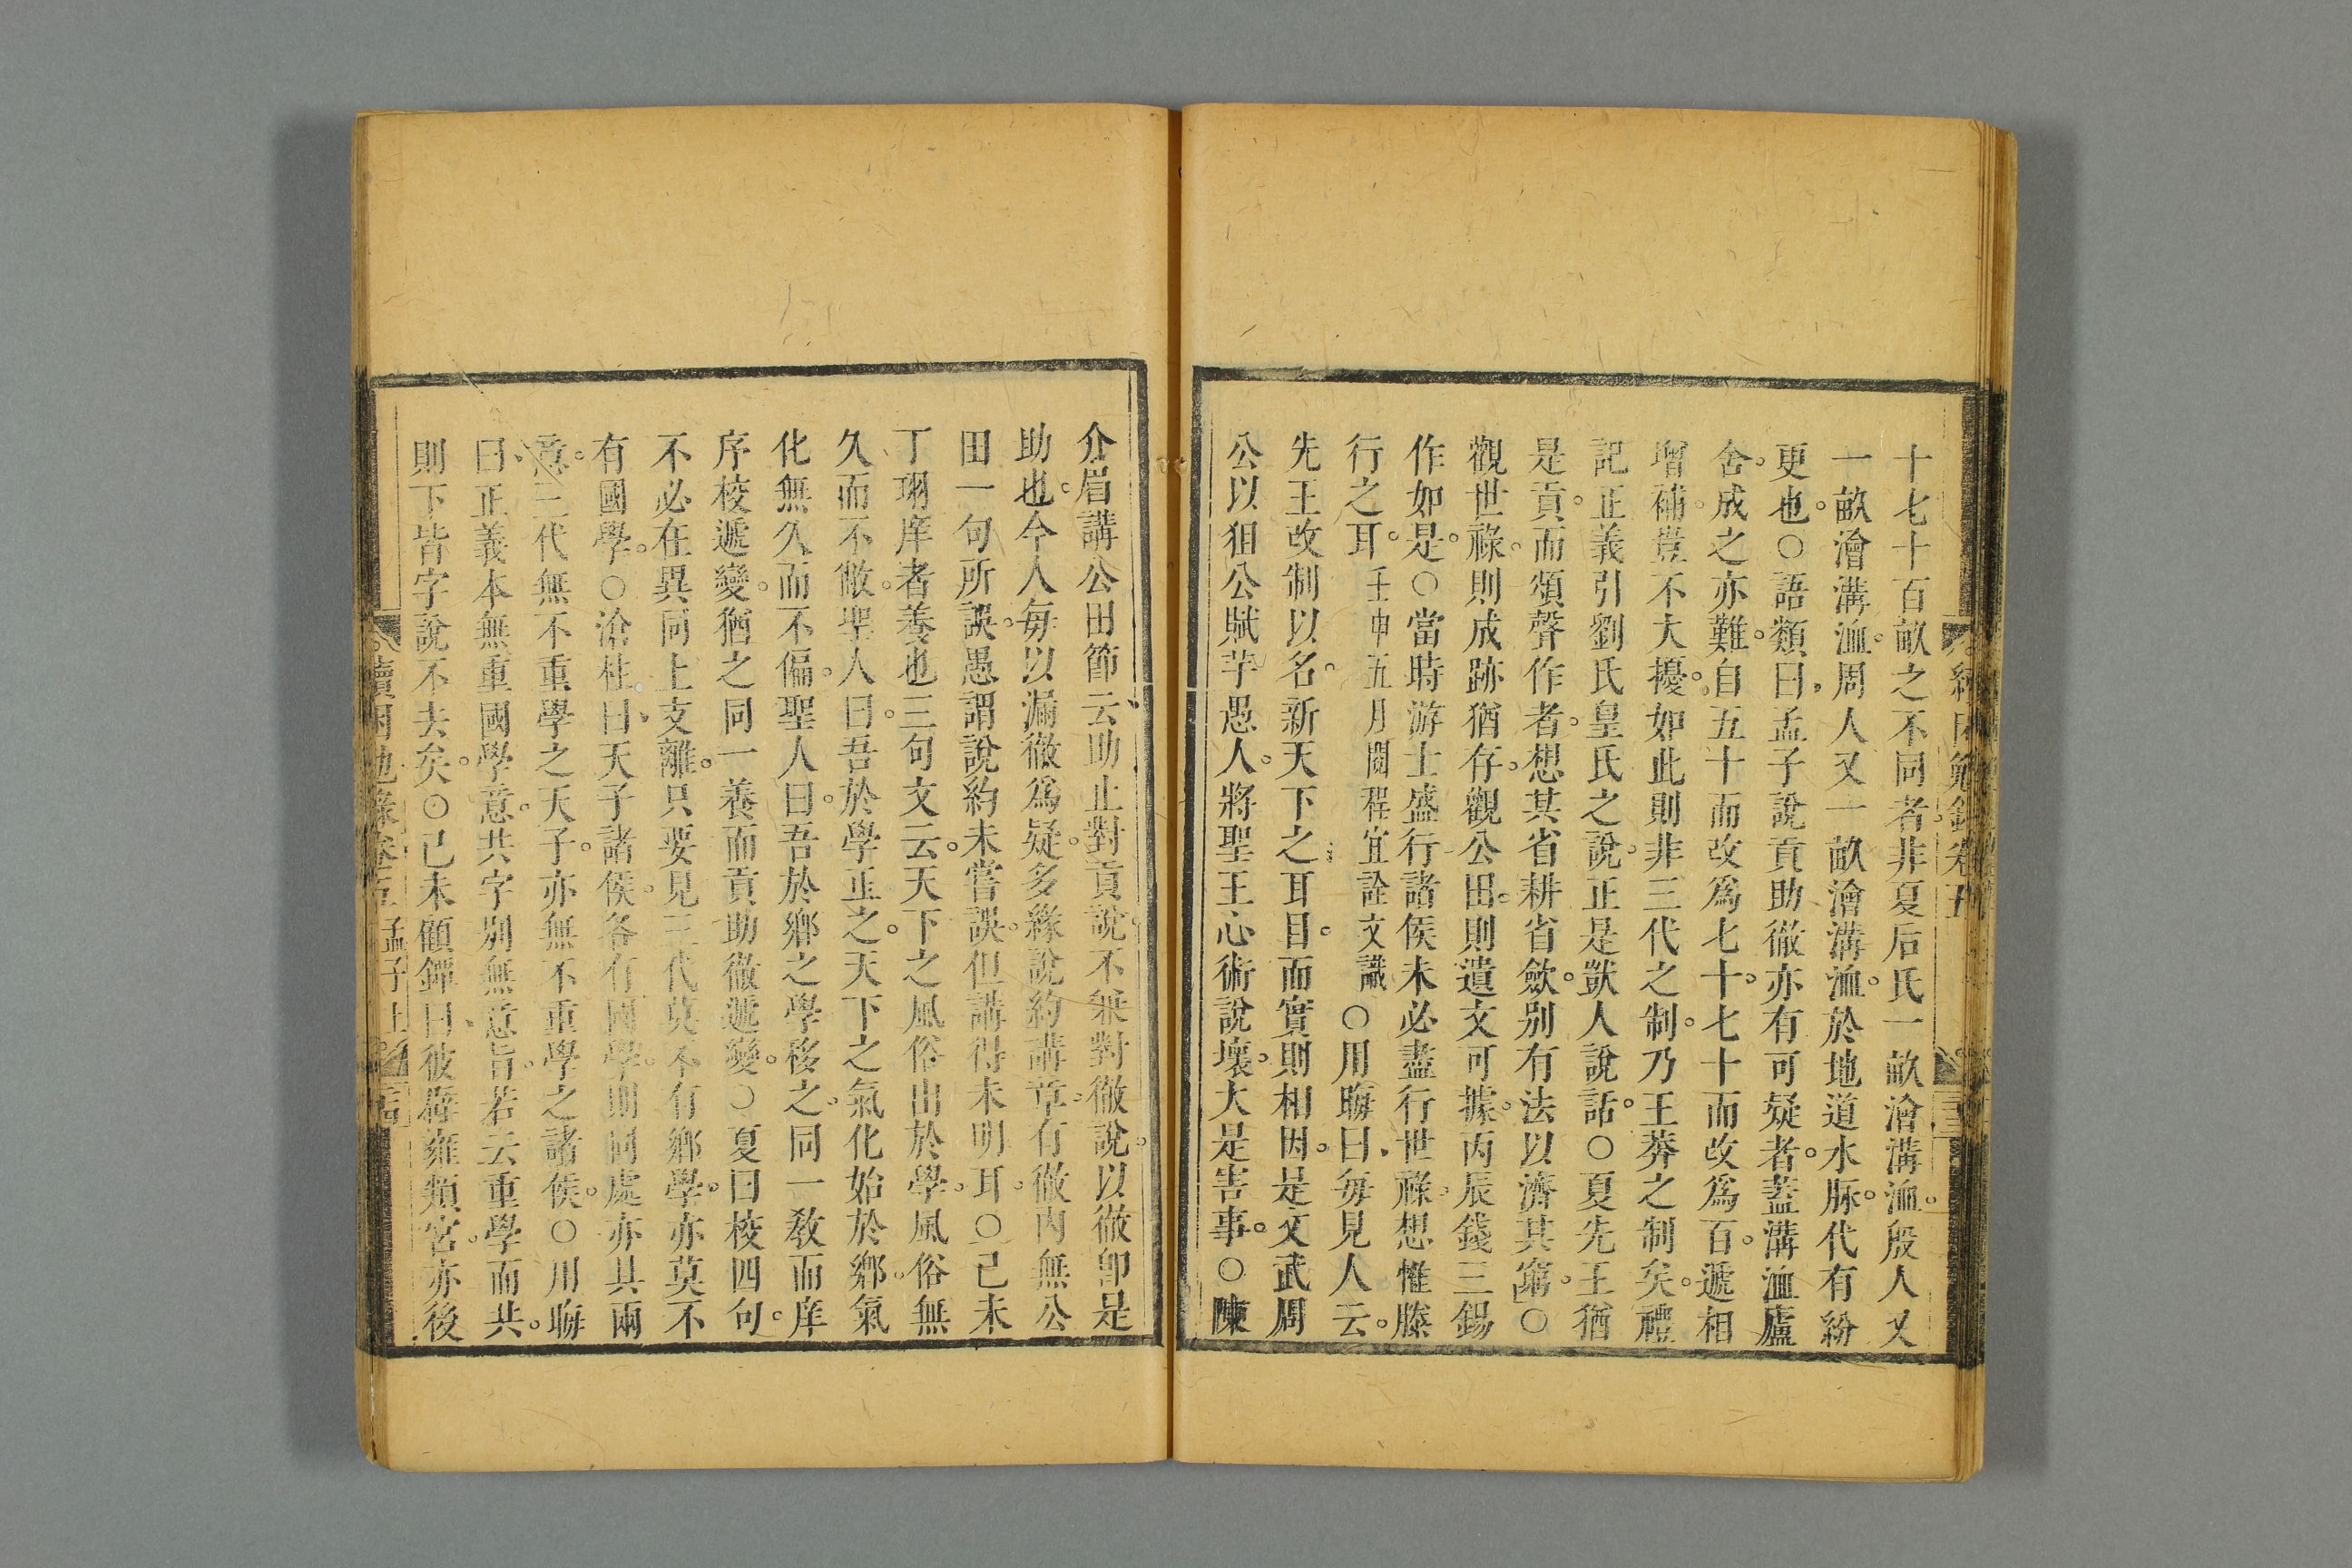 十七十百畝之不同者非夏后氏一畝澮溝洫殷人又
一畝澮溝洫周人又一畝澮溝洫於地道水脉代有紛
更也○語類曰孟子說貢助徹亦有可疑者蓋溝洫廬
舍成之亦難自五十而改爲七十七十而改爲百遞相
增補豈不大擾如此則非三代之制乃王莽之制矣禮
記正義引劉氏皇氏之說正是獃人說話○夏先王猶
是貢而頌聲作者想其省耕省斂别有法以濟其窮○
觀世祿則成跡猶存觀公田則遺文可據丙辰錢三錫
作如是○當時游士盛行諸侯未必盡行世祿想惟滕
行之耳壬申五月閱程宜詮文識○用晦曰毎見人云
先王改制以名新天下之耳目而實則相因是文武周
公以狙公賦芧愚人將聖王心術說壞大是害事○陳
介眉講公田節云助止對貢說不乗對徹說以徹卽是
助也今人毎以漏徹爲疑多緣說約講章有徹内無公
田一句所誤愚謂說約未嘗誤但講得未明耳○己未
丁琡庠者養也三句文云天下之風俗出於學風俗無
久而不敝聖人曰吾於學正之天下之氣化始於鄉氣
化無久而不偏聖人曰吾於鄉之學移之同一敎而庠
序校遞變猶之同一養而貢助徹遞變○夏曰校四句
不必在異同上支離只要見三代莫不有鄉學亦莫不
有國學○滄柱曰天子諸侯各有國學則同處亦具兩
意三代無不重學之天子亦無不重學之諸侯○用晦
曰正義本無重國學意共字别無意旨若云重學而共
則下皆字說不去矣○己未顧鐔曰彼辟雍頖宮亦後
續困勉錄卷五 孟子上